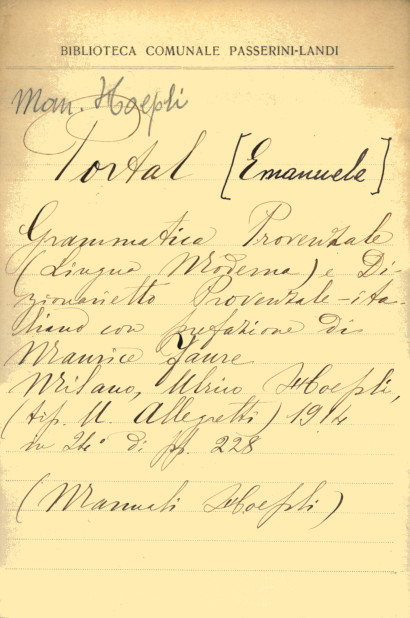 BIBLIOTECA COMUNALE PASSERINI-LANDI
Man. Hoepli
Portal [Emanuele]
Grammatica Provenzale
(Lingua Moderna) e Di-
zionarietto Provenzale-ita-
liano con prefazione di
Maurice Faure
Milano, Ulrico Hoepli,
(tip. U. Allegretti) 1914
in 24° di pp. 228
(Manuali Hoepli)